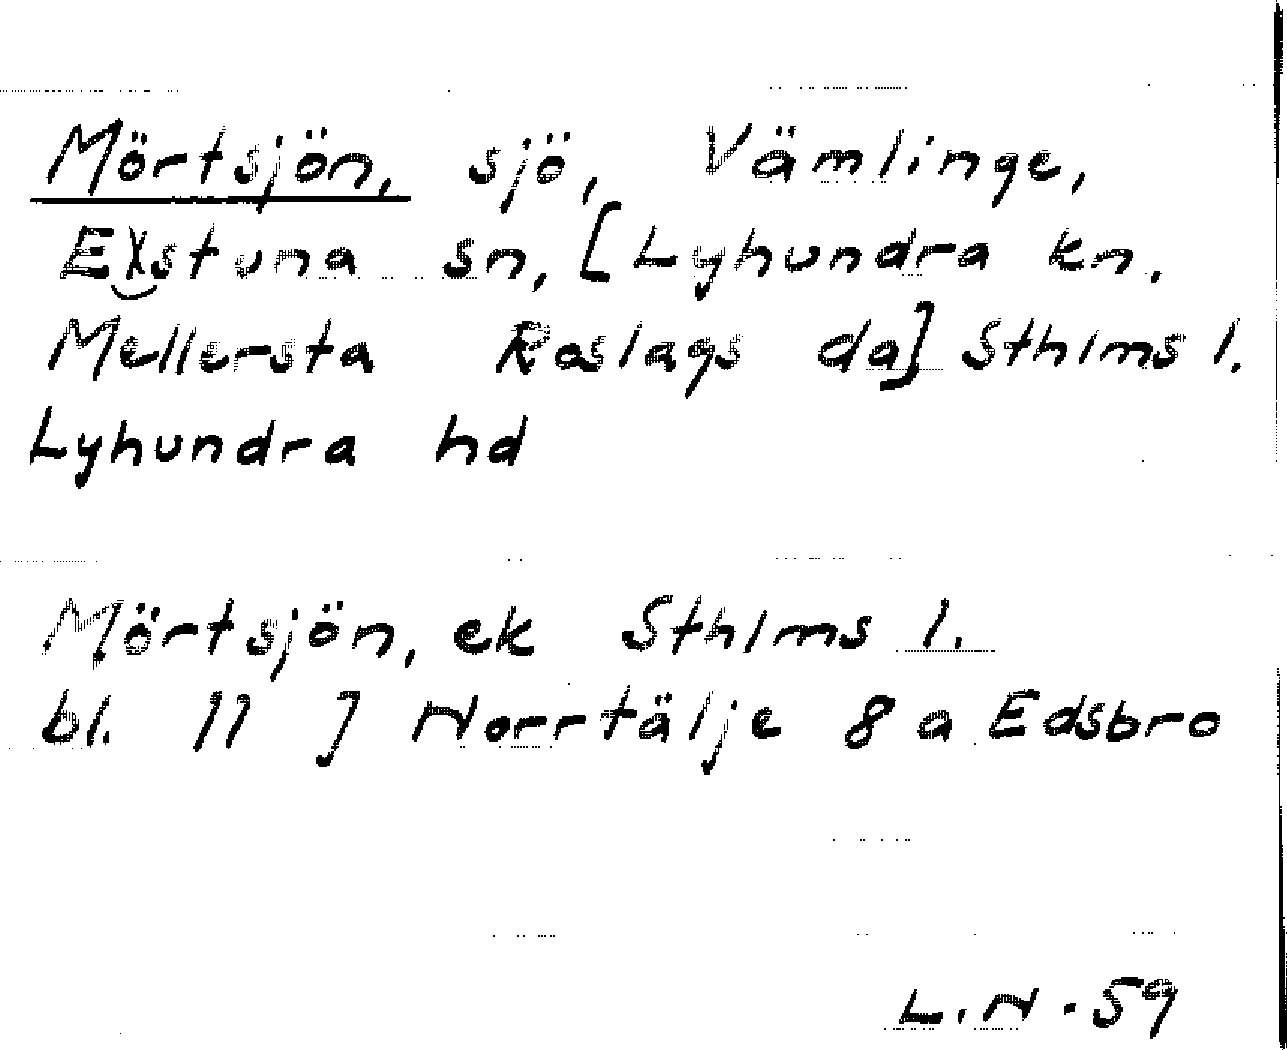 Mörtsjön, sjö, Vämlinge,
Estuna sn, [Lyhundra kn.
Mellersta Roslags da] Sthlms l.
Lyhundra hd
Mörtsjön, ek Sthlms l.
bl. 11 J Norrtälje 8 a Edsbro
L.N. 59